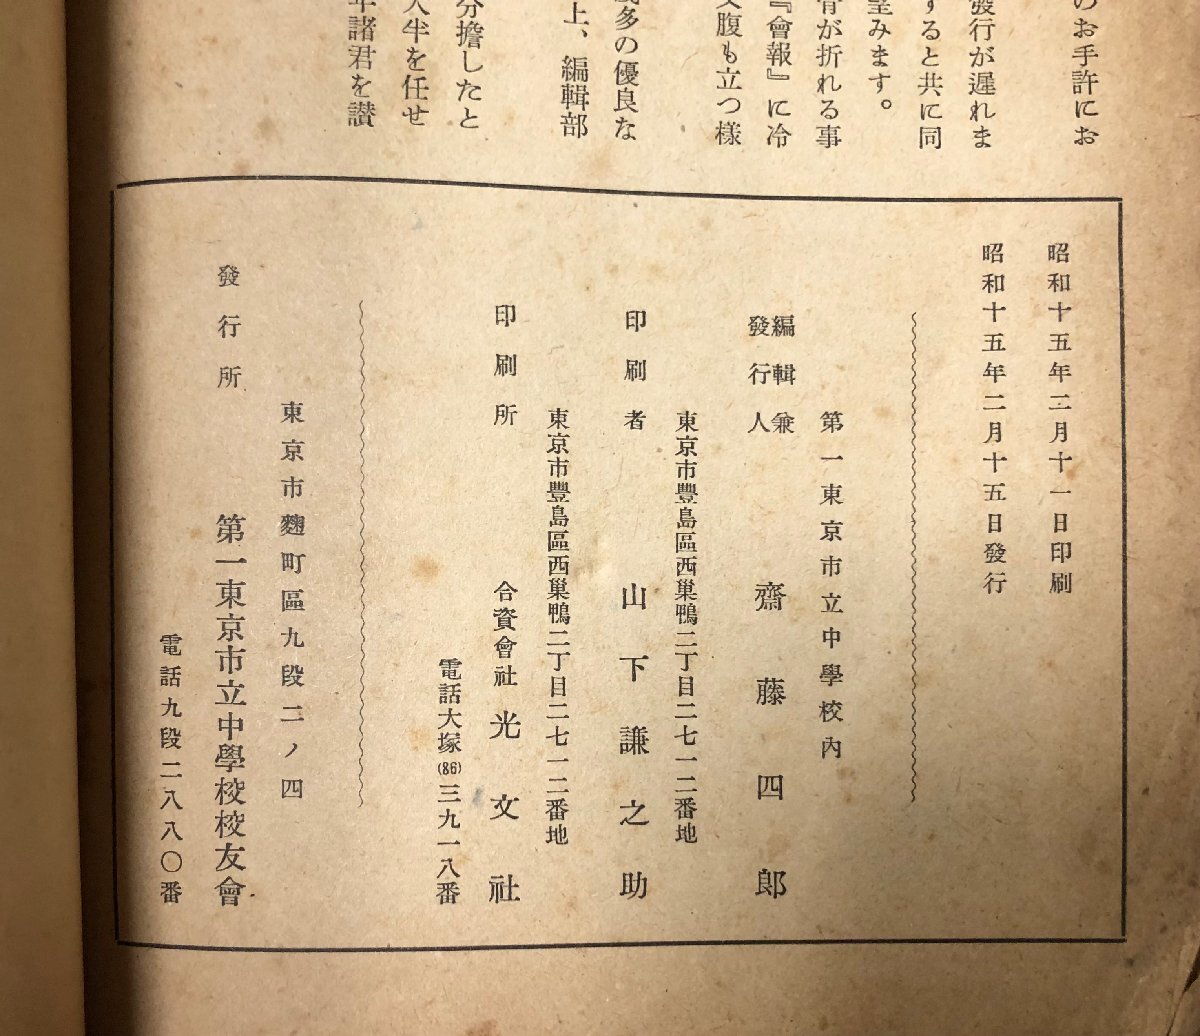 のお手許にお
發行が遲れま
すると共に同
望みます。
骨が折れる事
『會報』に冷
腹も立つ樣
多の優良な
上、編輯部
分擔したと
半を任せ
諸君を讃
昭和十五年二月十一日印刷
昭和十五年二月十五日發行
第一東京市立中學校內
編輯兼
發行人 齋藤四郎
東京市豐島區西巢鴨二丁目二七一二番地
印刷者 山下謙之助
東京市豐島區西巢鴨二丁目二七一二番地
印刷所 合資會社 光文社
電話大塚(86)三九一八番
東京市麴町區九段二ノ四
發行所 第一東京市立中學校校友會
電話九段二八八〇番